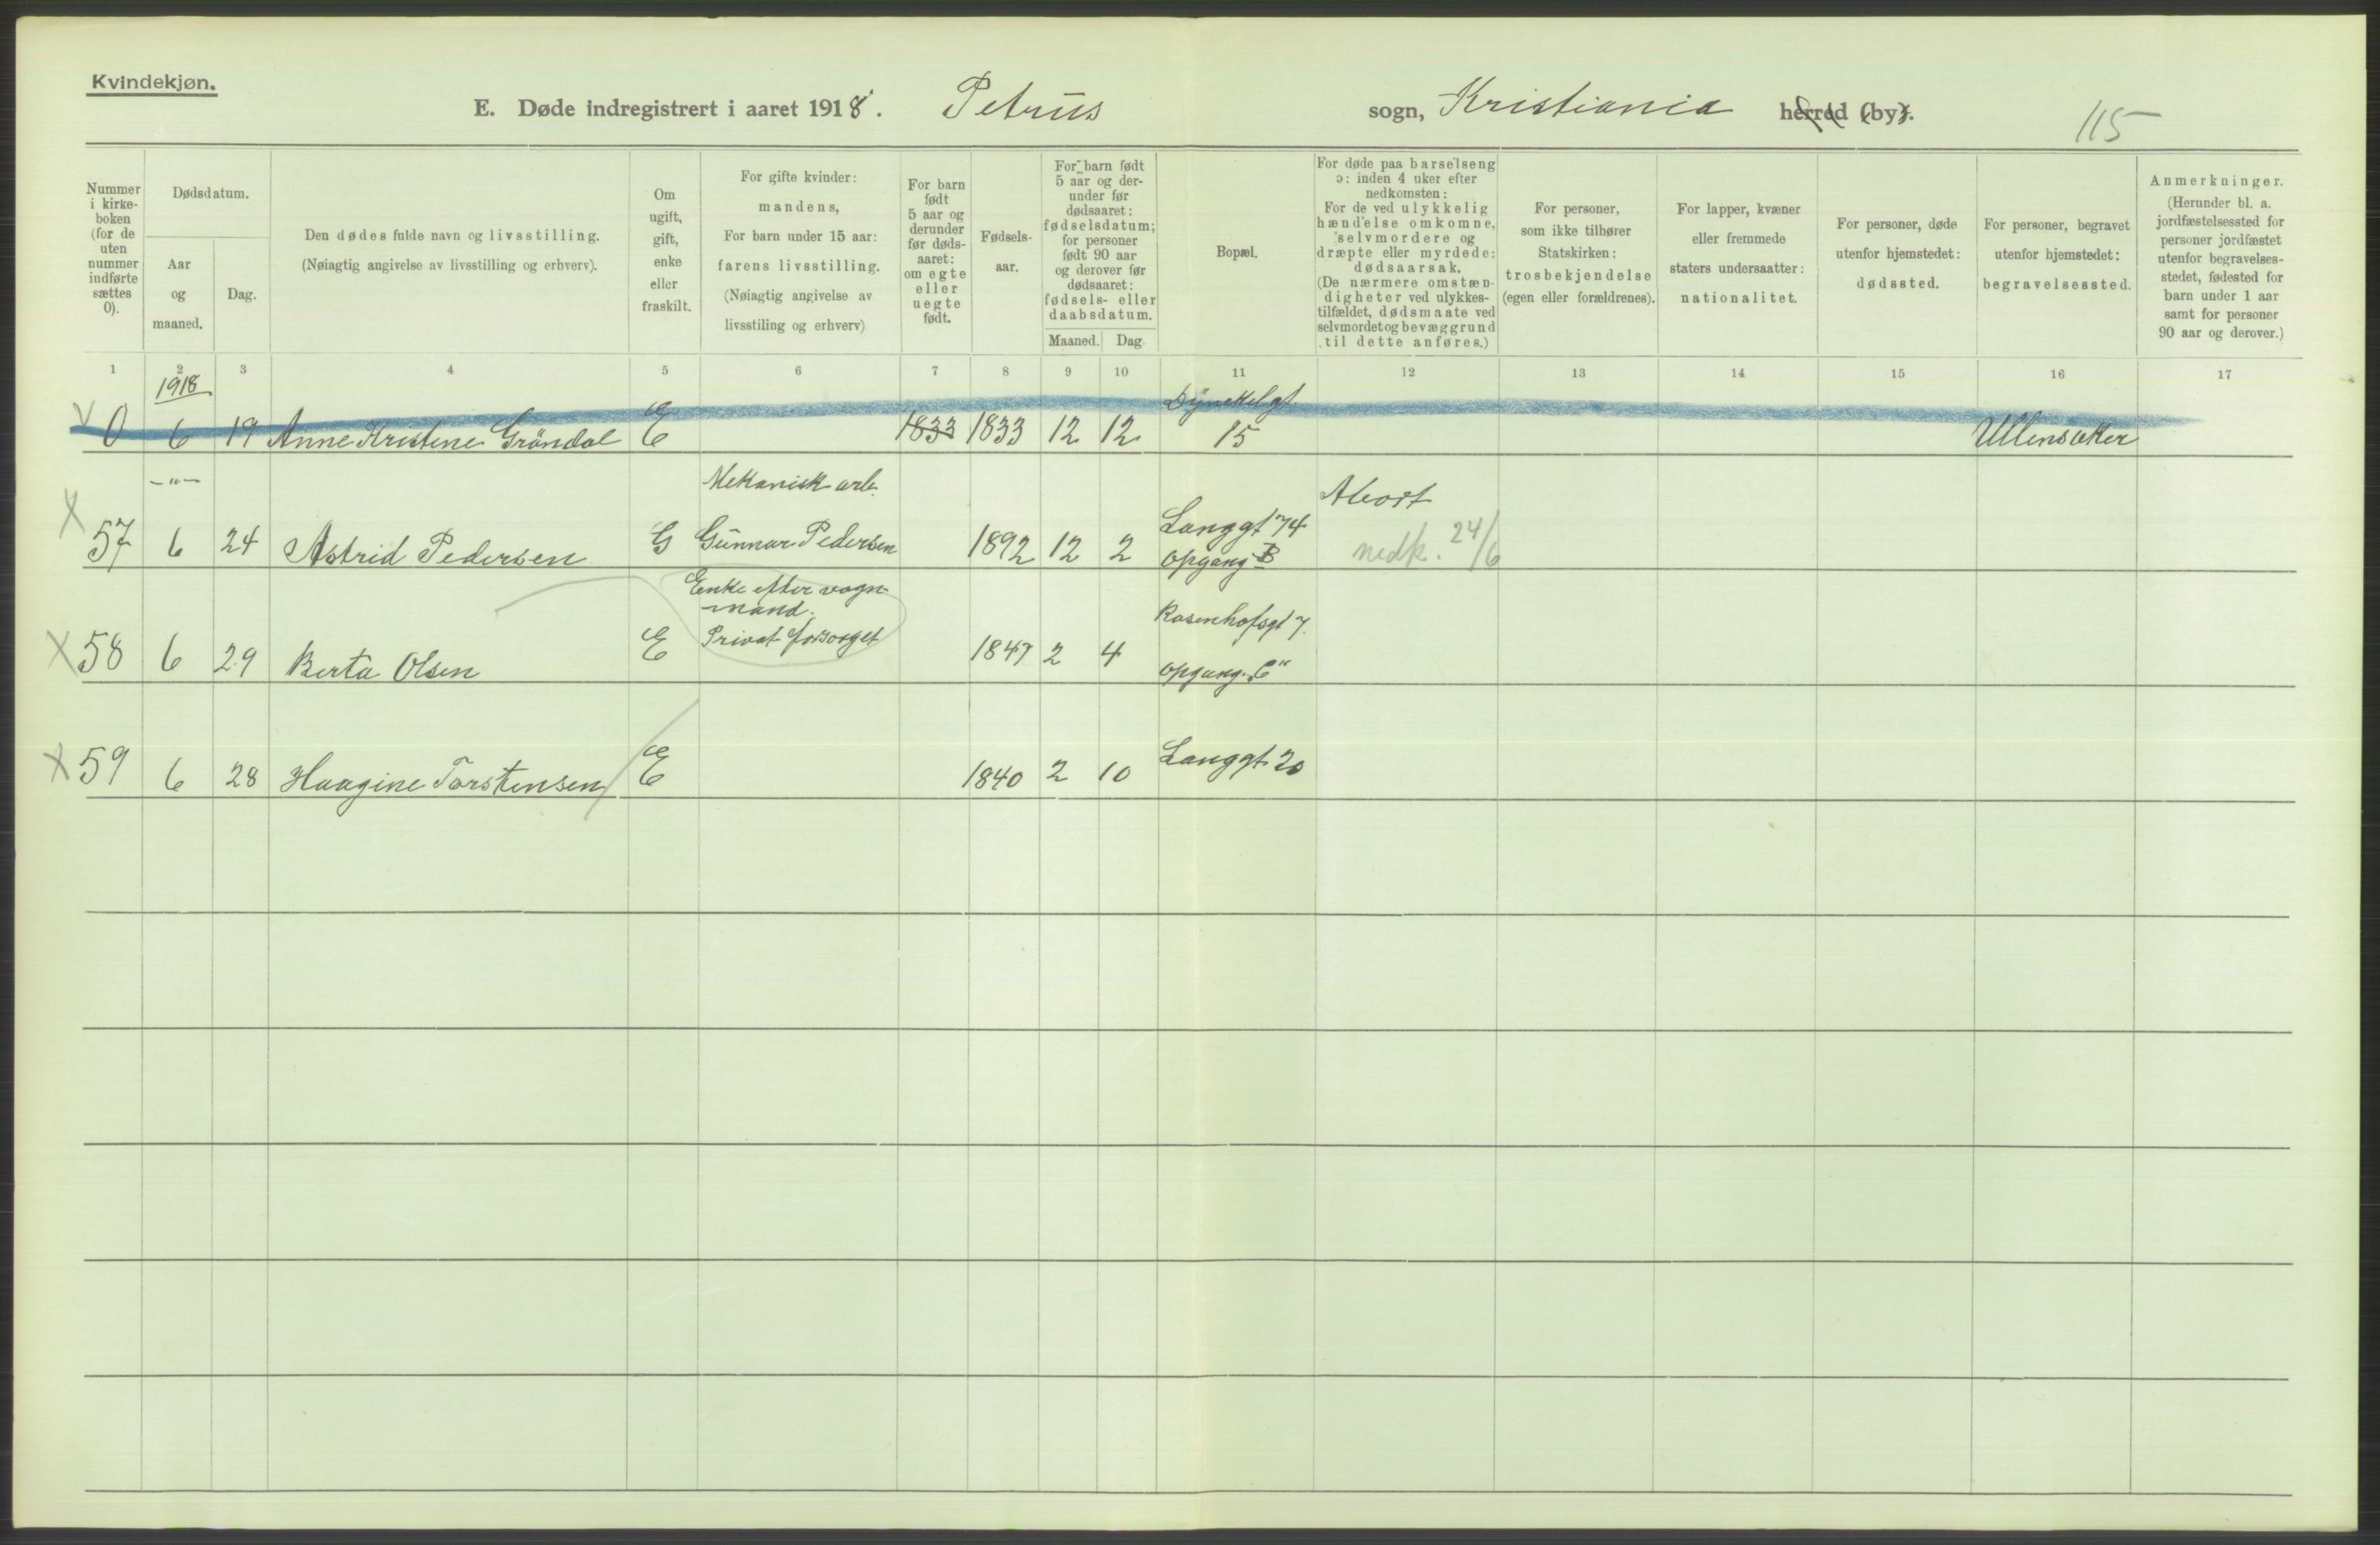 Kvindekjøn.
E. Døde indregistrert i aaret 1918. Petrus sogn, Kristiania herred (by).
115
Nummer i kirke-boken (for de uten nummer indførte sættes 0).
Dødsdatum.
Aar og maaned.
Dag.
Den dødes fulde navn og livsstilling.
(Nøiagtig angivelse av livsstilling og erhverv).
Om ugift, gift, enke eller fraskilt.
For gifte kvinder:
mandens,
For barn under 15 aar:
farens livsstilling.
(Nøiagtig angivelse av
livsstiling og erhverv)
For barn født 5 aar og derunder før døds-aaret: om egte eller uegte født.
Fødsels-aar.
For barn født 5 aar og der-under før dødsaaret: fødselsdatum; for personer født 90 aar og derover før dødsaaret: fødsels- eller daabsdatum.
Maaned. Dag.
Bopæl.
For døde paa barselseng
ɔ: inden 4 uker efter
nedkomsten:
For de ved ulykkelig
hændelse omkomne,
selvmordere og
dræpte eller myrdede:
dødsaarsak.
(De nærmere omstæn-
digheter ved ulykkes-
tilfældet, dødsmaate ved
selvmordet og bevæggrund
til dette anføres.)
For personer,
som ikke tilhører
Statskirken:
trosbekjendelse
(egen eller forældrenes).
For lapper, kvæner
eller fremmede
staters undersaatter:
nationalitet.
For personer, døde
utenfor hjemstedet:
dødssted.
For personer, begravet
utenfor hjemstedet:
begravelsessted.
Anmerkninger.
(Herunder bl. a.
jordfæstelsessted for
personer jordfæstet
utenfor begravelses-
stedet, fødested for
barn under 1 aar
samt for personer
90 aar og derover.)
1 2 3 4 5 6 7 8 9 10 11 12 13 14 15 16 17
1918
Dynekilgt.
0 6 19 Anne Kristine Gröndal E 1833 1833 12 12 15 Ullensaker
-"- Mekanisk arb. Abort
Langgt 74
57 6 24 Astrid Pedersen G Gunnar Pedersen 1892 12 2 opgang B nedk. 24/6
Enke efter vogn-
mand.
Rosenhofsgt 7.
58 6 29 Berta Olsen E Privat forsørget 1847 2 4
opgang "C"
59 6 28 Haagine Torstensen E 1840 2 10 Langgt. 20